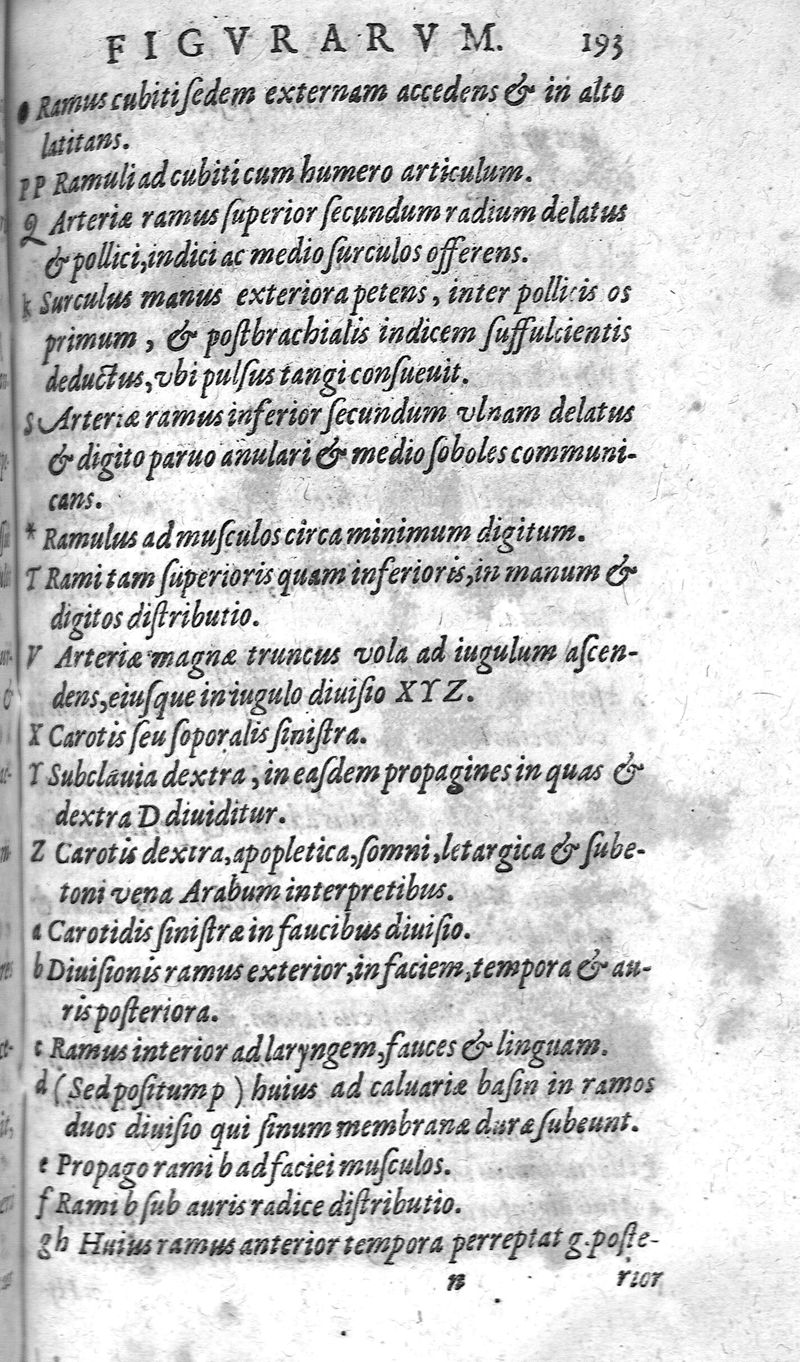 FIGVRARVM. 193
Ramus cubiti ſedem externam accedens & in alto
latitans.
PP Ramuli ad cubiti cum humero articulum.
Q Arteriæ ramus ſuperior ſecundum radium delatus
& pollici, indici ac medio ſurculos offerens.
Surculus manus exteriora petens, inter pollicis os
primum, & poſtbrachialis indicem ſuffulcientis
deductus, vbi pulſus tangi conſueuit.
S Arteriæ ramus inferior ſecundum vlnam delatus
& digito paruo anulari & medio ſoboles communi-
cans.
* Ramulus ad muſculos circa minimum digitum.
T Rami tam ſuperioris quam inferioris, in manum &
digitos diſtributio.
V Arteriæ magnæ truncus vola ad iugulum aſcen-
dens, eiuſque in iugulo diuiſio XYZ.
X Carotis ſeu ſoporalis ſiniſtra.
Y Subclauia dextra, in eaſdem propagines in quas &
dextra D diuiditur.
Z Carotis dextra, apopletica, ſomni, letargica & ſube-
toni vena Arabum interpretibus.
a Carotidis ſiniſtræ in faucibus diuiſio.
b Diuiſionis ramus exterior, in faciem, tempora & au-
ris poſteriora.
c Ramus interior ad laryngem, fauces & linguam.
d (Sed poſitum p) huius ad caluariæ baſin in ramos
duos diuiſio qui ſinum membranæ duræ ſubeunt.
e Propago rami b ad faciei muſculos.
f Rami b ſub auris radice diſtributio.
gh Huius ramus anterior tempora perreptat g. poſte-
n rior